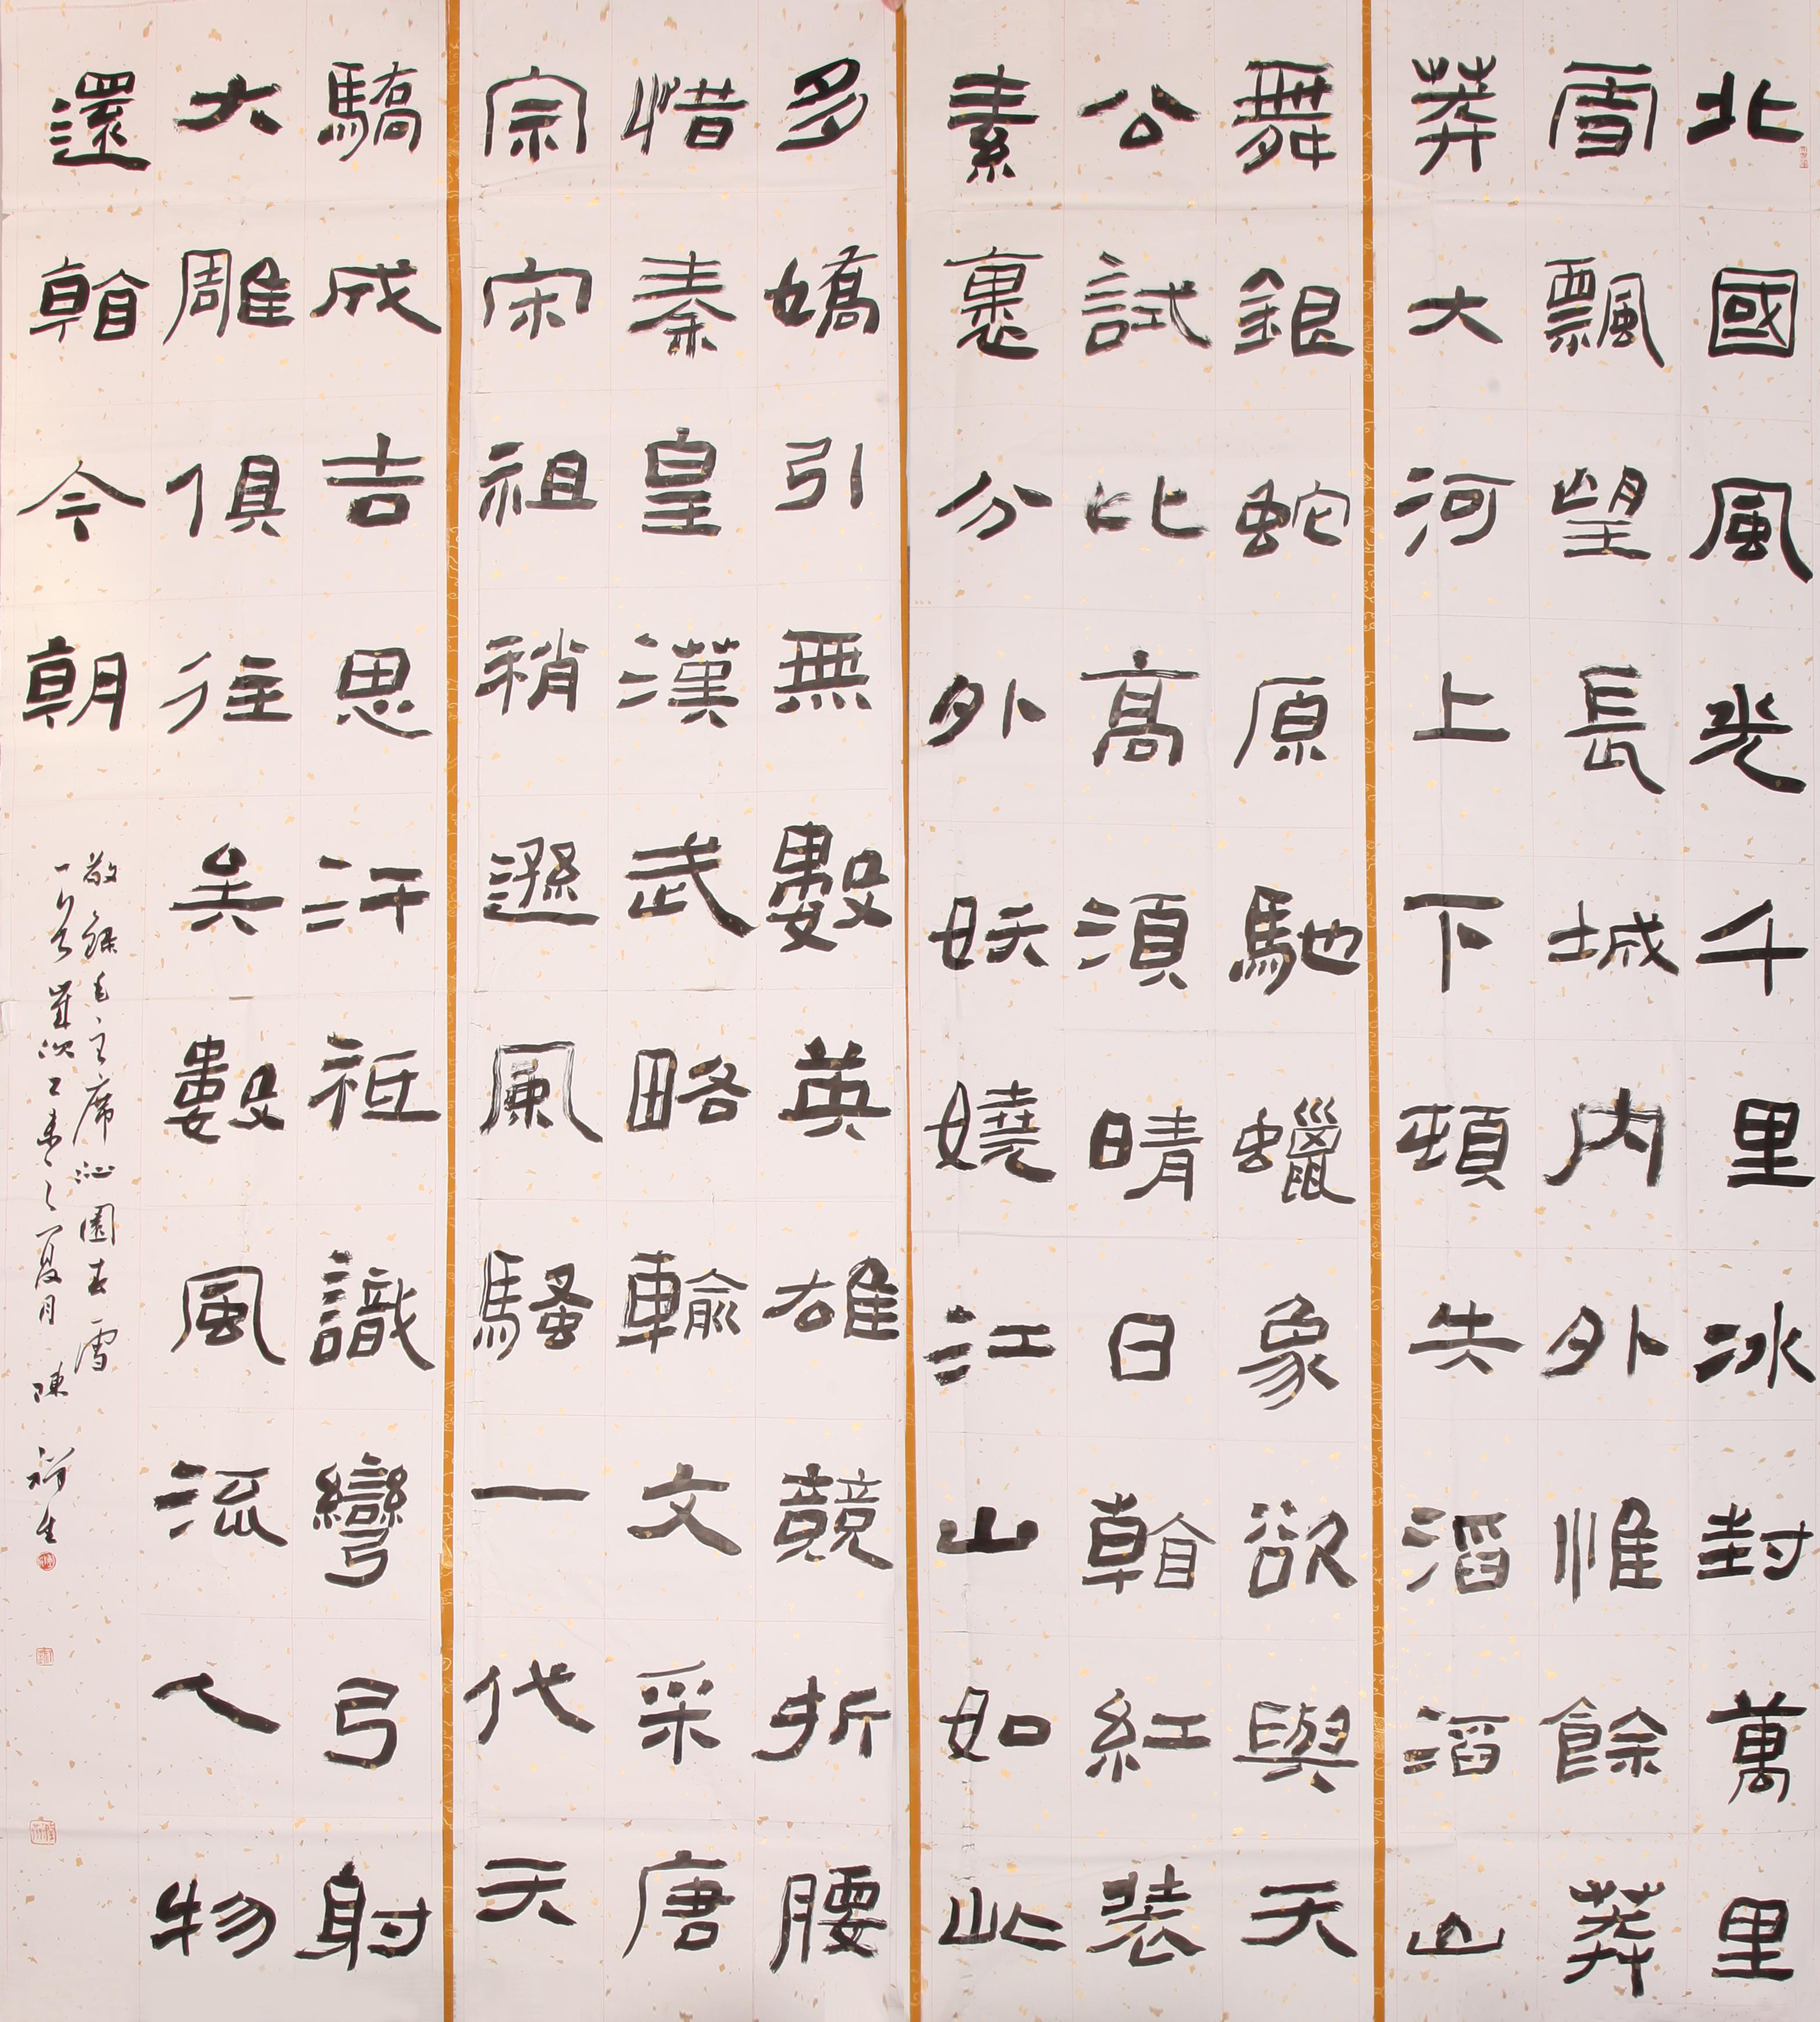 北國風光千里冰封萬里
雪飄望長城內外惟餘莽
莽大河上下頓失滔滔山
舞銀蛇原馳蠟象欲與天
公試比高須晴日看紅裝
素裹分外妖嬈江山如此
多嬌引無數英雄競折腰
惜秦皇漢武略輸文采唐
宗宋祖稍遜風騷一代天
驕成吉思汗祇識彎弓射
大雕俱往矣數風流人物
還看今朝
敬錄毛主席沁園春雪
一首歲次乙未之夏月陳祥生